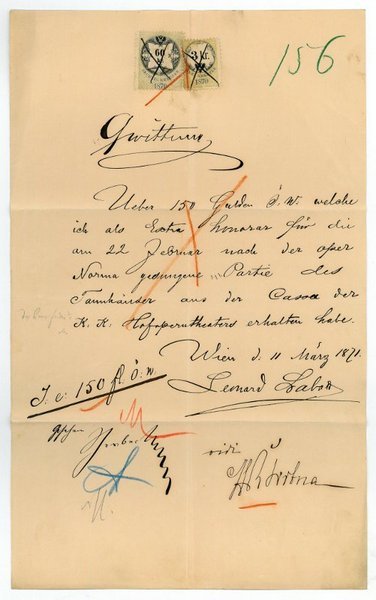 156
60 kr.
3 kr.
1870
1870
Quittung
Ueber 150 Gulden Ö. W. welche
ich als Extra honorar für die
am 22 Februar nach der oper
Norma gesungene Partie des
Tannhäuser aus der Cassa der
K. K. Hofoperntheaters erhalten habe.
Wien d. 11 März 1871.
I. e. 150 fl. Ö. W.
Leonard Labatt
gesehen
vidi